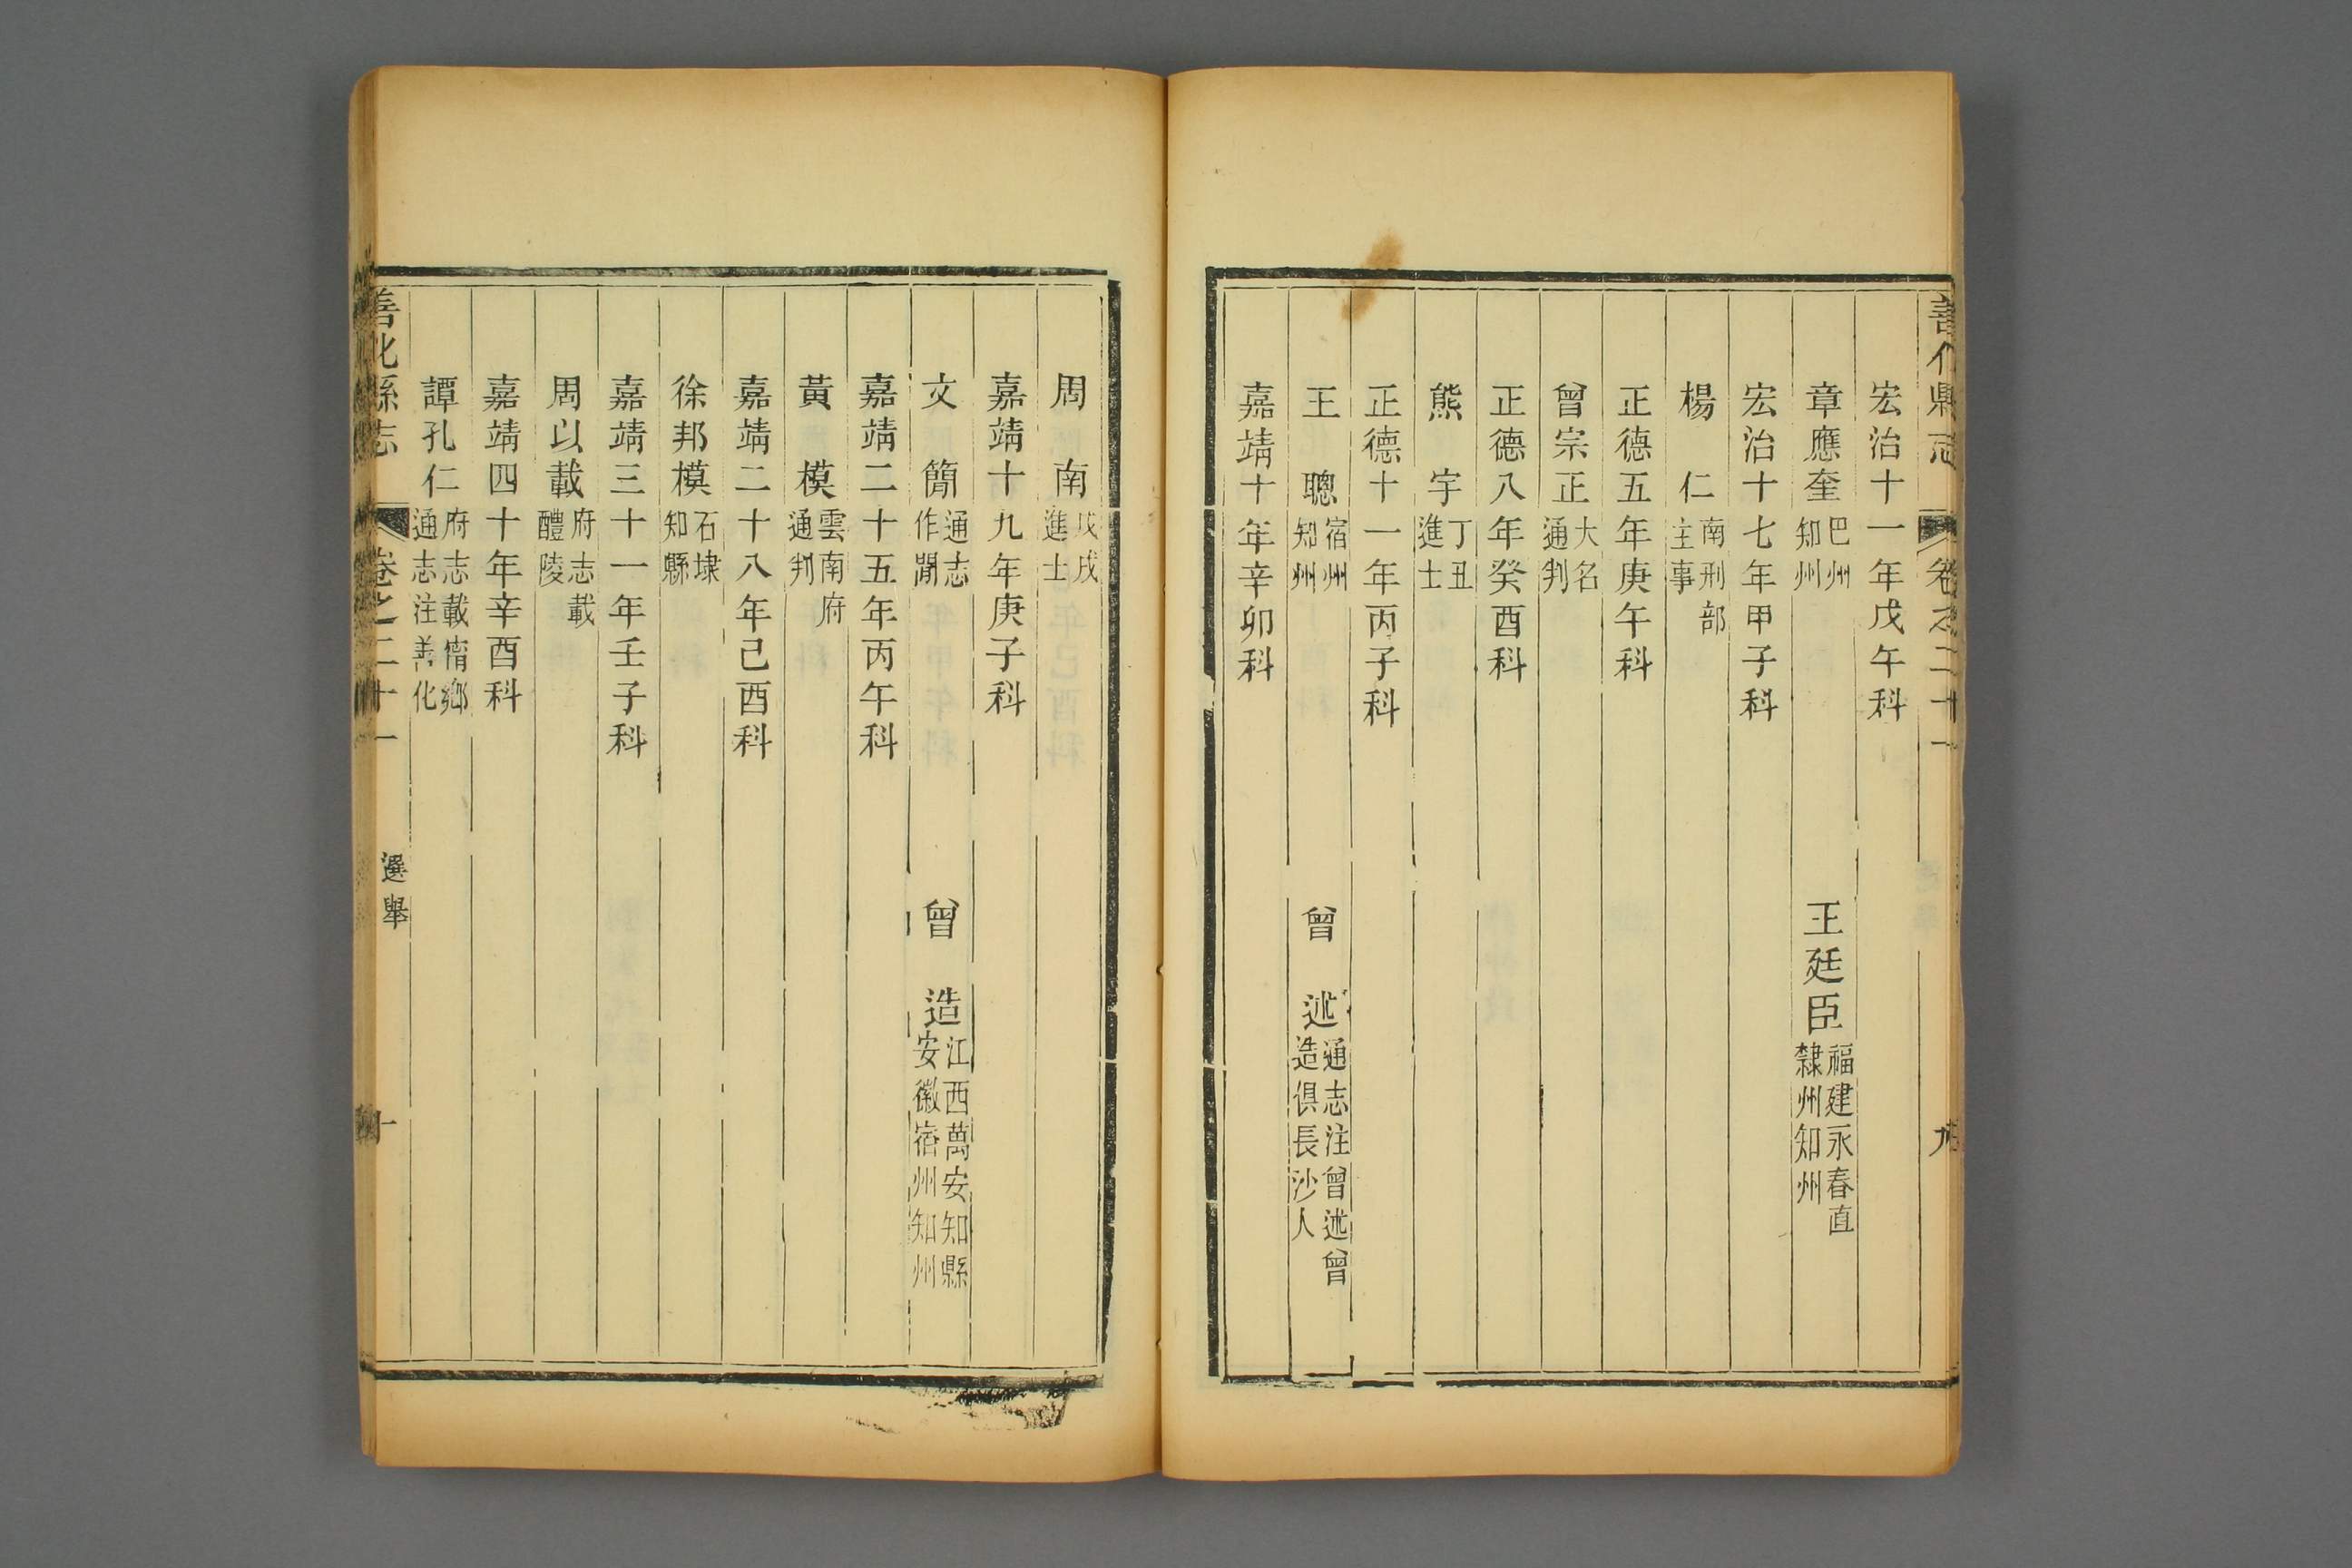 善化縣志 卷之二十一 九
宏治十一年戊午科
章應奎 巴州知州 王廷臣 福建永春直隸州知州
宏治十七年甲子科
楊 仁 南刑部主事
正德五年庚午科
曾宗正 大名通判
正德八年癸酉科
熊 宇 丁丑進士
正德十一年丙子科
王 聰 宿州知州 曾 述 通志注曾述曾造俱長沙人
嘉靖十年辛卯科
周 南 戊戌進士
嘉靖十九年庚子科
文 簡 通志作閒 曾 造 江西萬安知縣安徽宿州知州
嘉靖二十五年丙午科
黃 模 雲南府通判
嘉靖二十八年己酉科
徐邦模 石埭知縣
嘉靖三十一年壬子科
周以載 府志載醴陵
嘉靖四十年辛酉科
譚孔仁 府志載甯鄉通志注善化
善化縣志 卷之二十一 選舉 十